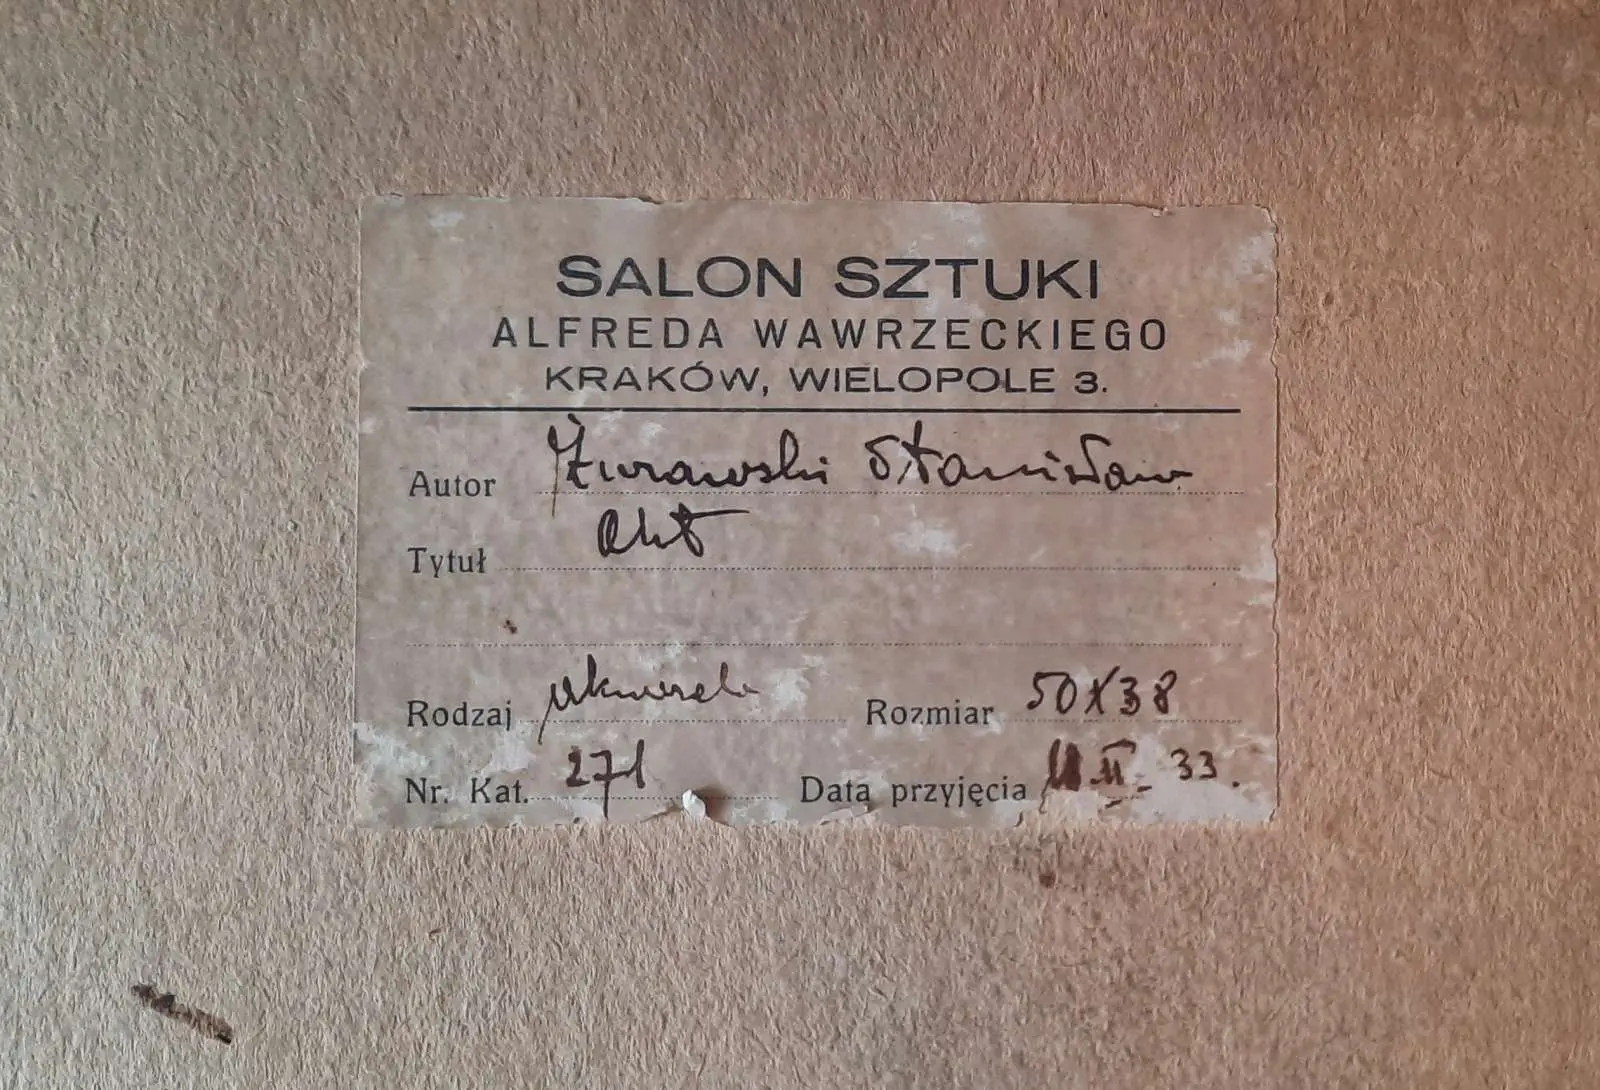 SALON SZTUKI
ALFREDA WAWRZECKIEGO
KRAKÓW, WIELOPOLE 3.
Autor Żurawski Stanisław
Tytuł Akt
Rodzaj akwarela Rozmiar 50X38
Nr. Kat. 271 Data przyjęcia II 33.